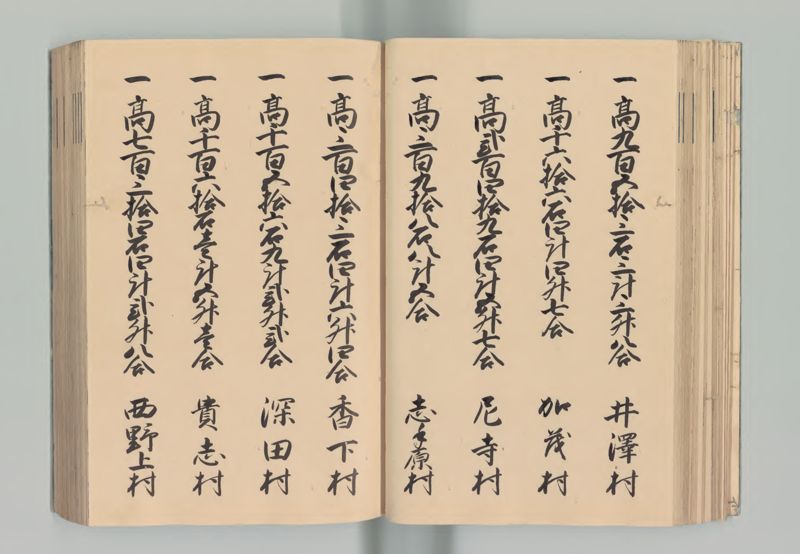 一高九百五拾三石三斗三升八合 井澤村
一高千六拾六石四斗四升七合 加茂村
一高弐百四拾九石四斗五升七合 尼寺村
一高三百九拾八石八斗五合 志手原村
一高三百四拾三石四斗六升四合 香下村
一高千百五拾六石九斗弐升弐合 深田村
一高千百六拾石壱斗五升壱合 貴志村
一高七百三拾四石四斗弐升八合 西野上村